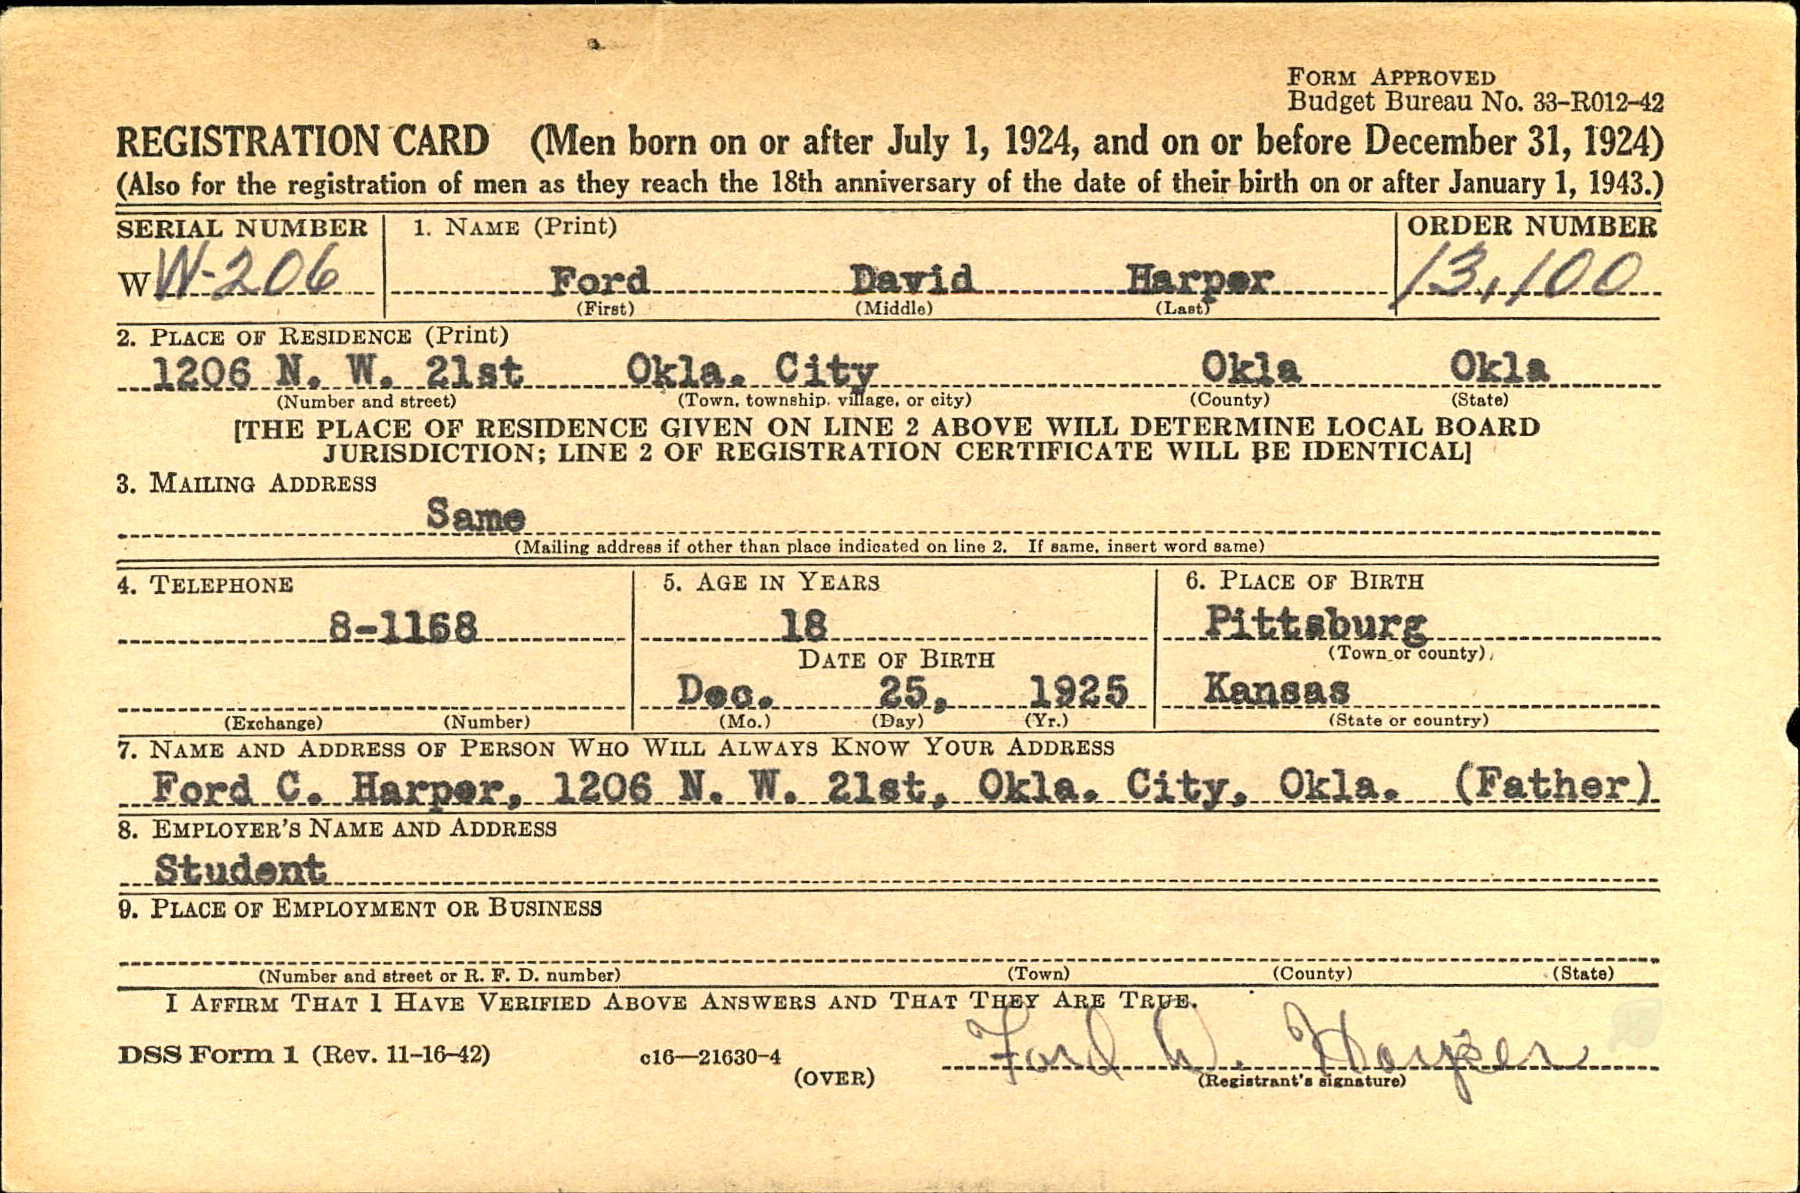 FORM APPROVED
Budget Bureau No. 33-R012-42
REGISTRATION CARD (Men born on or after July 1, 1924, and on or before December 31, 1924)
(Also for the registration of men as they reach the 18th anniversary of the date of their birth on or after January 1, 1943.)
SERIAL NUMBER 1. NAME (Print) ORDER NUMBER
W W-206 Ford David Harper 13,100
(First) (Middle) (Last)
2. PLACE OF RESIDENCE (Print)
1206 N. W. 21st Okla. City Okla Okla
(Number and street) (Town, township, village, or city) (County) (State)
[THE PLACE OF RESIDENCE GIVEN ON LINE 2 ABOVE WILL DETERMINE LOCAL BOARD
JURISDICTION; LINE 2 OF REGISTRATION CERTIFICATE WILL BE IDENTICAL]
3. MAILING ADDRESS
Same
(Mailing address if other than place indicated on line 2. If same, insert word same)
4. TELEPHONE 5. AGE IN YEARS 6. PLACE OF BIRTH
8-1168 18 Pittsburg
(Town or county)
DATE OF BIRTH
Dec. 25, 1925 Kansas
(Exchange) (Number) (Mo.) (Day) (Yr.) (State or country)
7. NAME AND ADDRESS OF PERSON WHO WILL ALWAYS KNOW YOUR ADDRESS
Ford C. Harper, 1206 N. W. 21st, Okla. City, Okla. (Father)
8. EMPLOYER'S NAME AND ADDRESS
Student
9. PLACE OF EMPLOYMENT OR BUSINESS
(Number and street or R. F. D. number) (Town) (County) (State)
I AFFIRM THAT I HAVE VERIFIED ABOVE ANSWERS AND THAT THEY ARE TRUE.
DSS Form 1 (Rev. 11-16-42) c16—21630-4 Ford D. Harper
(OVER) (Registrant's signature)